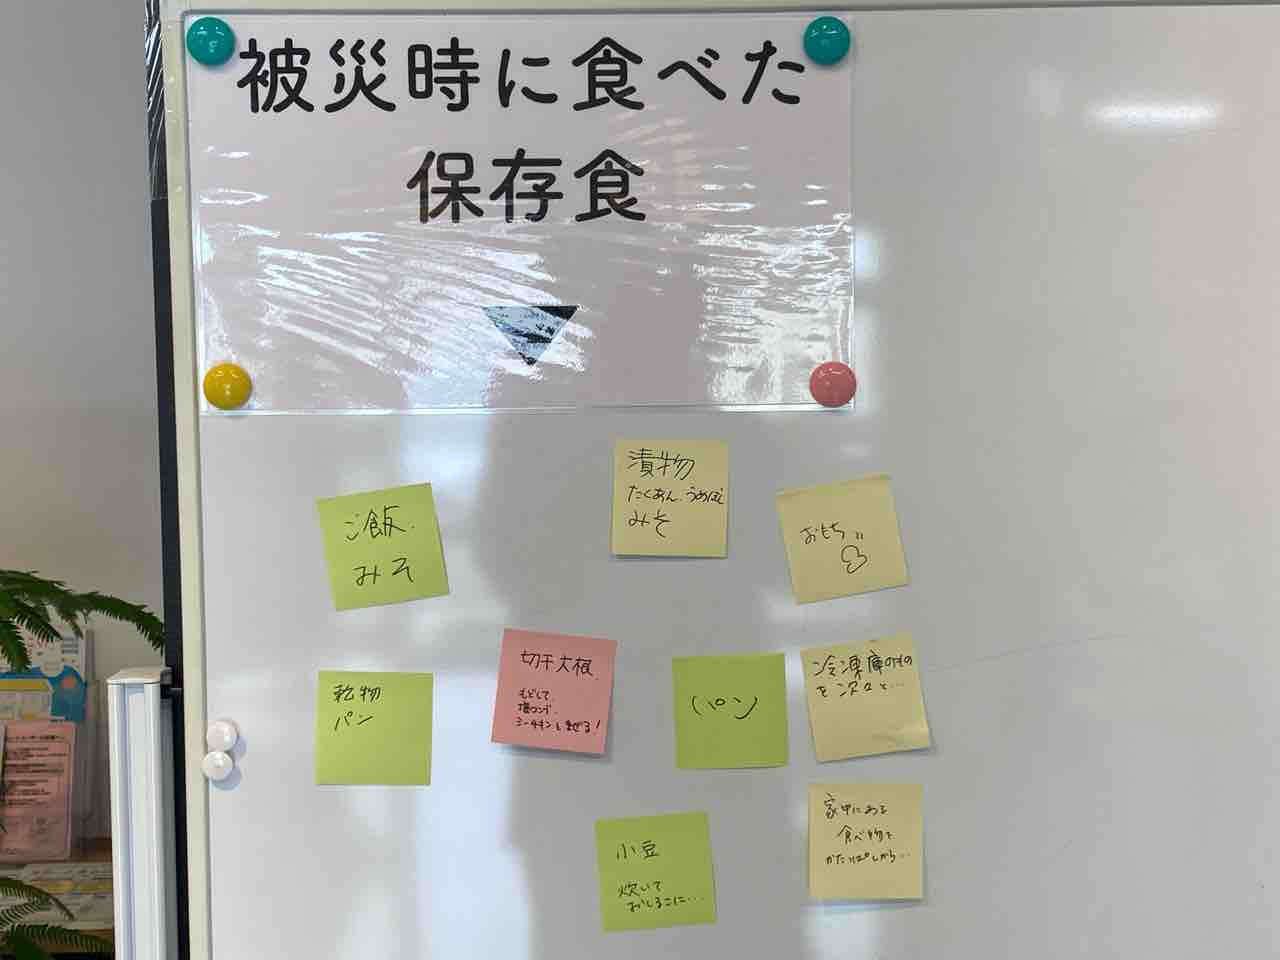 被災時に食べた
保存食
漬物
たくあん、うめぼし
みそ
ご飯、
みそ
おもち〃
切干大根、
もどして、
塩コンブ、
シーチキンしませる!
乾物
パン
パン
冷凍庫のもの
を次々と…
小豆
炊いて
おしるこに…
家中にある
食べ物を
かたっぱしから…